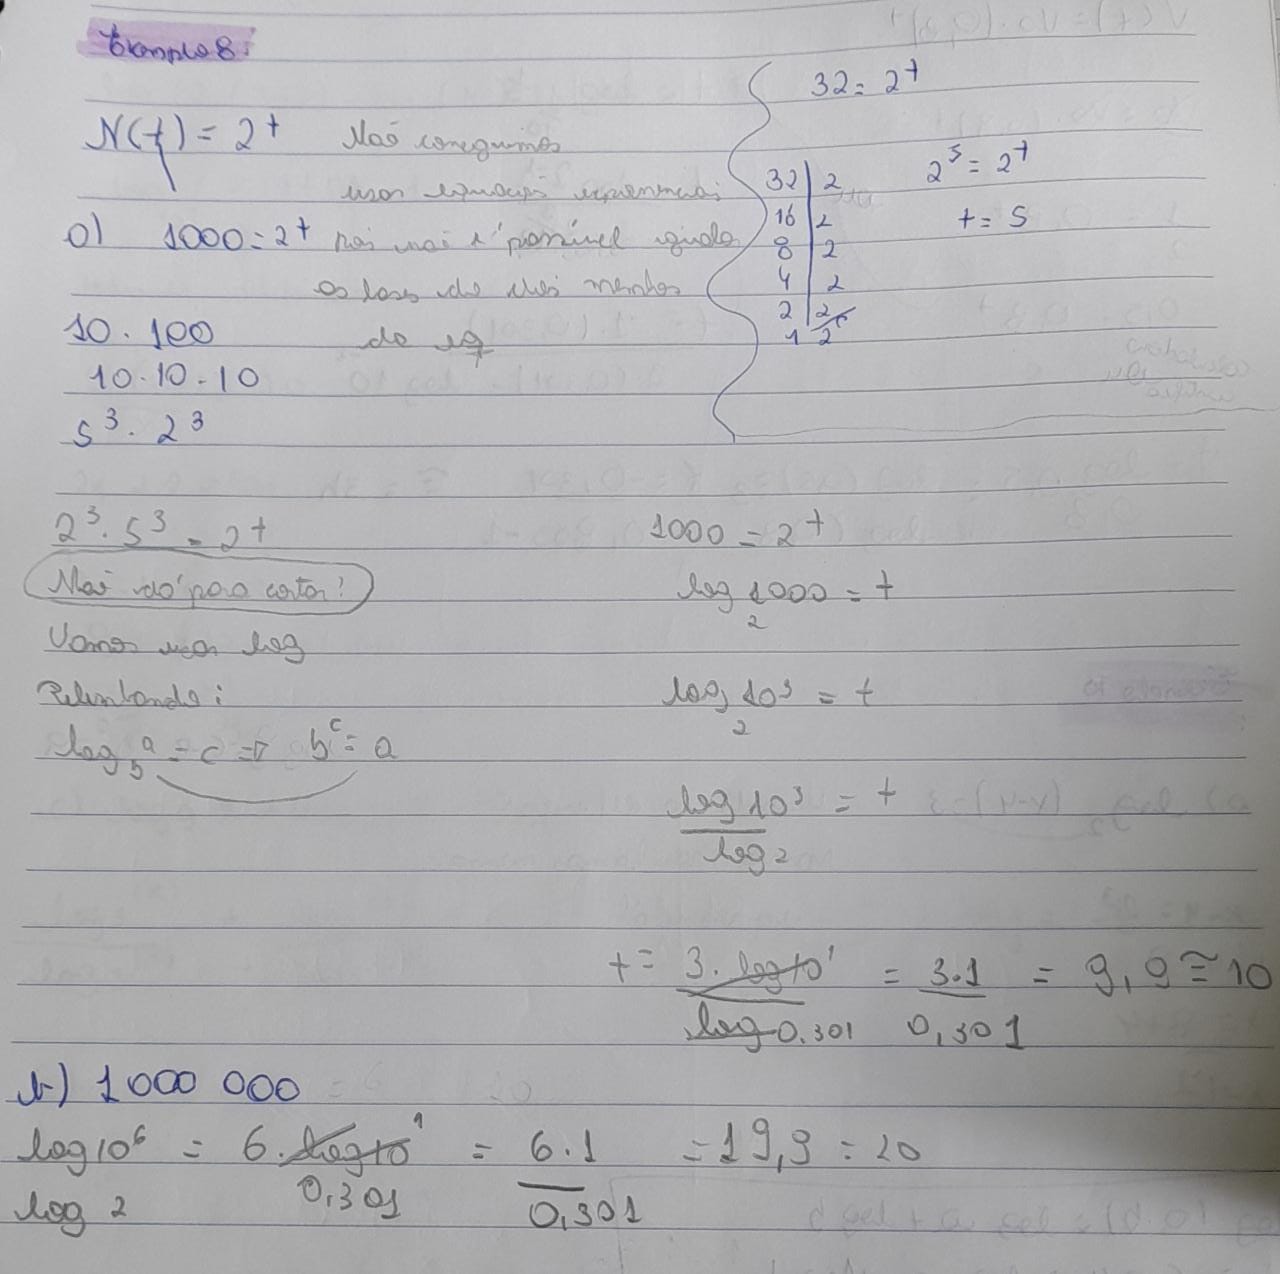 Exemplo 8:
N(t) = 2^t Não conseguimos
usar equações exponenciais
a) 1000 = 2^t pois não é possível igualar
as bases do dois membros
da eq
10 . 100
10 . 10 . 10
5^3 . 2^3
32 = 2^t
32 | 2
16 | 2
8 | 2
4 | 2
2 | 2
1 2^5
2^5 = 2^t
t = 5
2^3 . 5^3 = 2^t
Não dá para cortar!
Vamos usar log
Relembrando:
log_b a = c => b^c = a
1000 = 2^t
log_2 1000 = t
log_2 10^3 = t
log 10^3 = t
log 2
t = 3 . log 10 1 = 3.1 = 9,9 ≅ 10
log 0.301 0,301
b) 1 000 000
log 10^6 = 6 . log 10 1 = 6.1 = 19,9 = 20
log 2 0,301 0,301